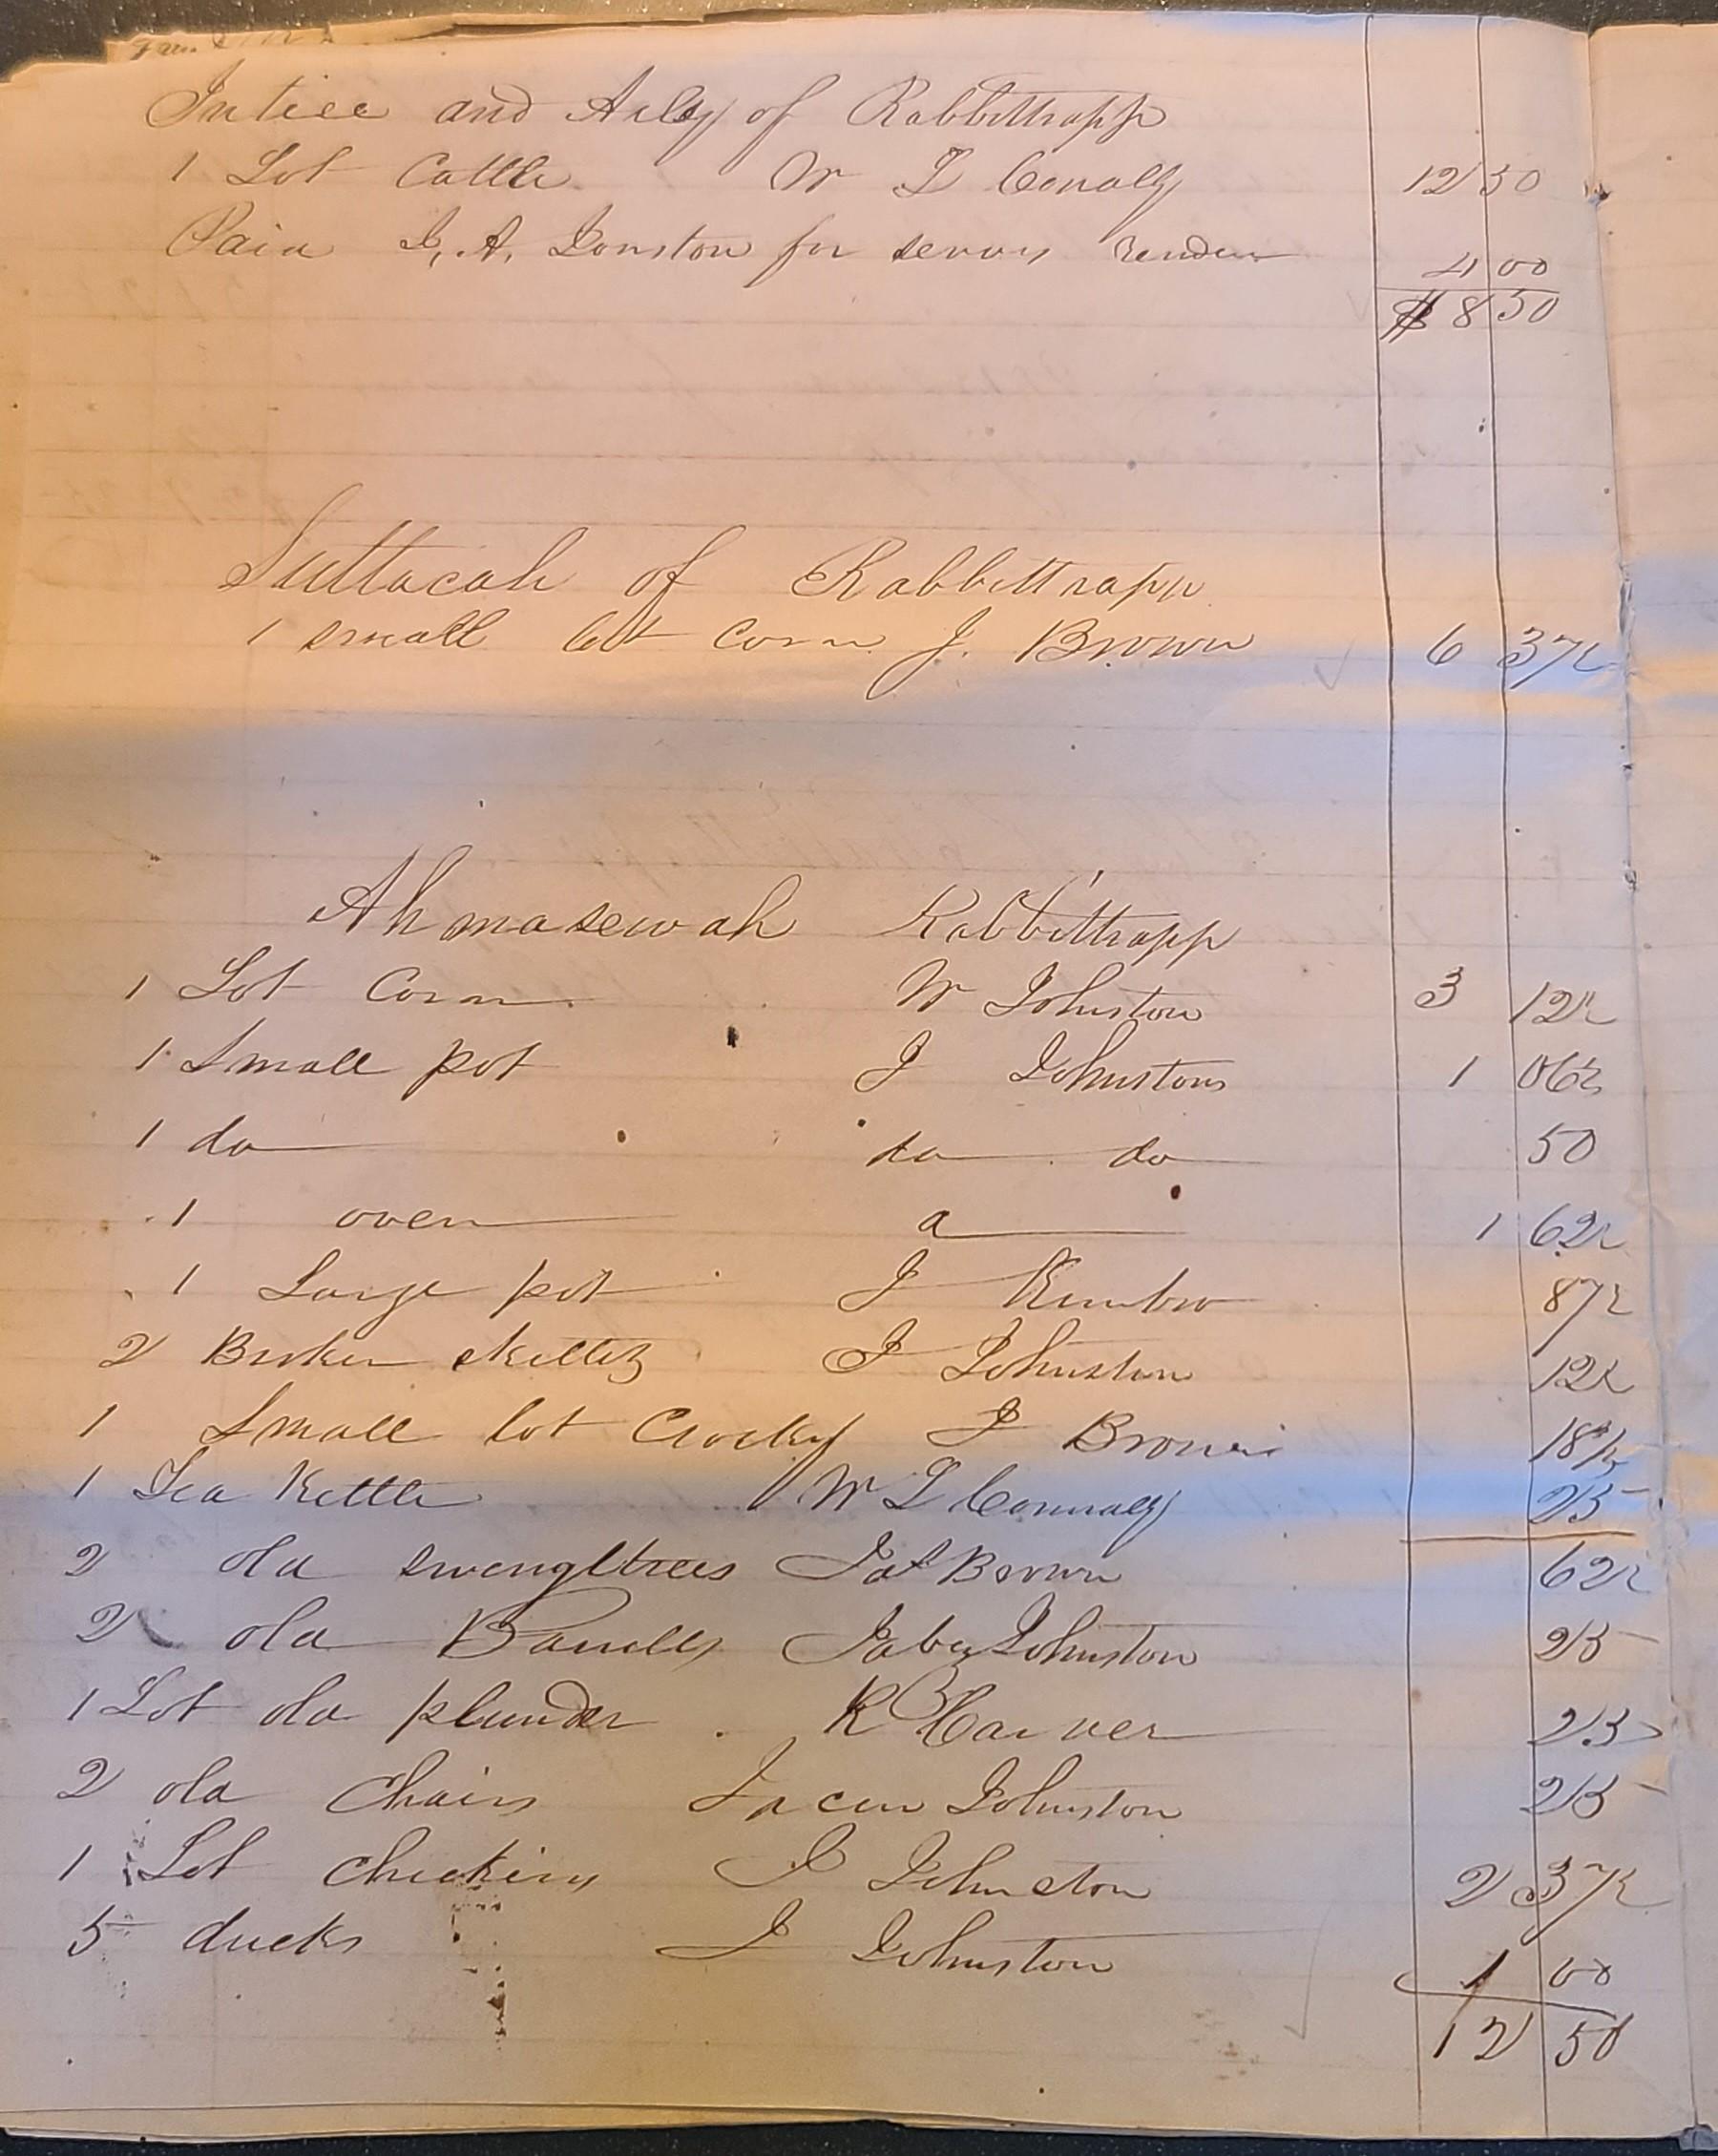 Intice and Arley of Rabbittrapp
1 Lot Cattle W L Conally 12 50
Paid J, A, Jonston for servis render 4 00
$ 8 50
Suttacah of Rabbittrapp
1 small lot corn J. Brown 6 37½
Ahmasewah Rabbittrapp
1 Lot Corn W Johnston 3 12½
1 Small pot J Johnston 1 06¼
1 do do do 50
1 oven d 1 62½
1 Large pot J Kimbro 87½
2 Broken skillets J Johnston 12½
1 Small lot Crocky J Brown 18¾
1 Tea Kettle W L Connaly 25
2 old swengltrees Jas Brown 62½
2 old Barrells Johnston 25
1 Lot old plunder R B Carver 25
2 old Chairs Johnston 25
1 Lot chickins J Johnston 2 37½
5 ducks J Johnston 1 00
12 50